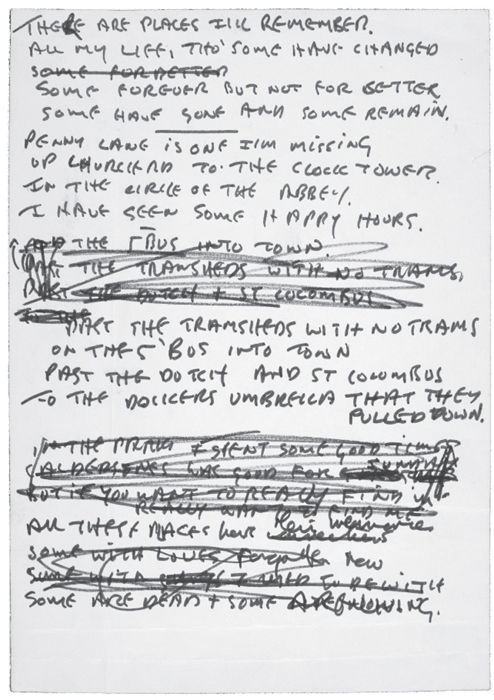 THERE ARE PLACES I'LL REMEMBER.
ALL MY LIFE, THO' SOME HAVE CHANGED
SOME FOR BETTER
SOME FOREVER BUT NOT FOR BETTER
SOME HAVE GONE AND SOME REMAIN.
PENNY LANE IS ONE I'M MISSING
UP CHURCH RD TO THE CLOCK TOWER.
IN THE CIRCLE OF THE ABBEY.
I HAVE SEEN SOME HAPPY HOURS.
THE 5 BUS INTO TOWN.
PAST THE TRAMSHEDS WITH NO TRAMS,
PAST THE DUTCH + ST COLOMBUS
PAST THE TRAMSHEDS WITH NO TRAMS
ON THE 5 BUS INTO TOWN
PAST THE DUTCH AND ST COLUMBUS
TO THE DOCKERS UMBRELLA THAT THEY
PULLED DOWN.
IN THE PARK I SPENT SOME GOOD TIMES
WAS GOOD FOR
BUT IF YOU WANT TO REALLY FIND
REALLY WANT TO FIND ME
ALL THESE PLACES have their memories
SOME WITH LOVES forgotten now
SOME WITH I USED TO BE WITH
SOME ARE DEAD + SOME ARE LIVING.